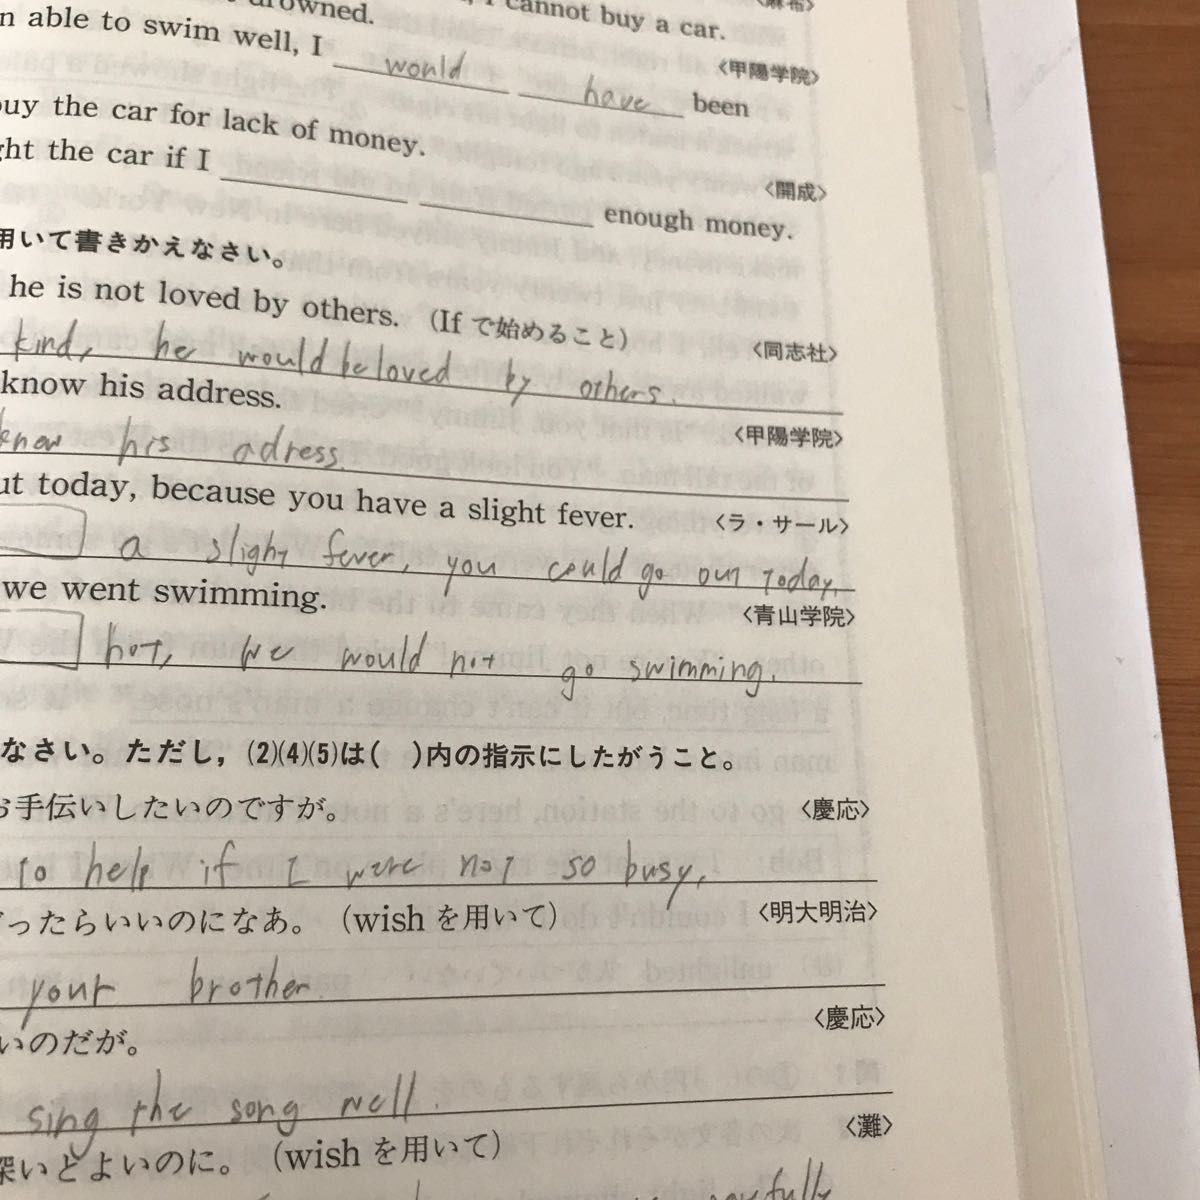 drowned.
I cannot buy a car.
〈麻布〉
n able to swim well, I would have been
〈甲陽学院〉
buy the car for lack of money.
ght the car if I ＿＿ ＿＿ enough money.
〈開成〉
用いて書きかえなさい。
he is not loved by others. （If で始めること）
〈同志社〉
kind, he would be loved by others.
know his address.
〈甲陽学院〉
knew his adress.
ut today, because you have a slight fever.
〈ラ・サール〉
a slight fever, you could go out today.
we went swimming.
〈青山学院〉
hot, we would not go swimming.
なさい。ただし，(2)(4)(5)は(　)内の指示にしたがうこと。
お手伝いしたいのですが。
〈慶応〉
to help if I were not so busy,
だったらいいのになあ。（wish を用いて）
〈明大明治〉
your brother.
いのだが。
〈慶応〉
sing the song well.
深いとよいのに。（wish を用いて）
〈灘〉